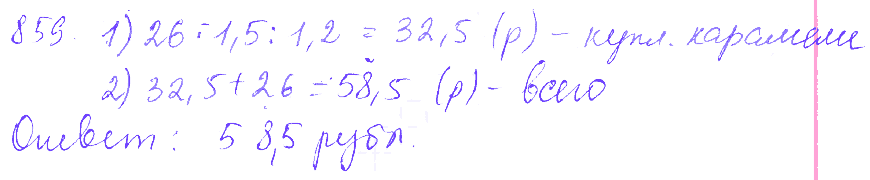 859. 1) 26 · 1,5 : 1,2 = 32,5 (р) – купл. карамели
2) 32,5 + 26 = 58,5 (р) – всего
Ответ: 58,5 рубл.